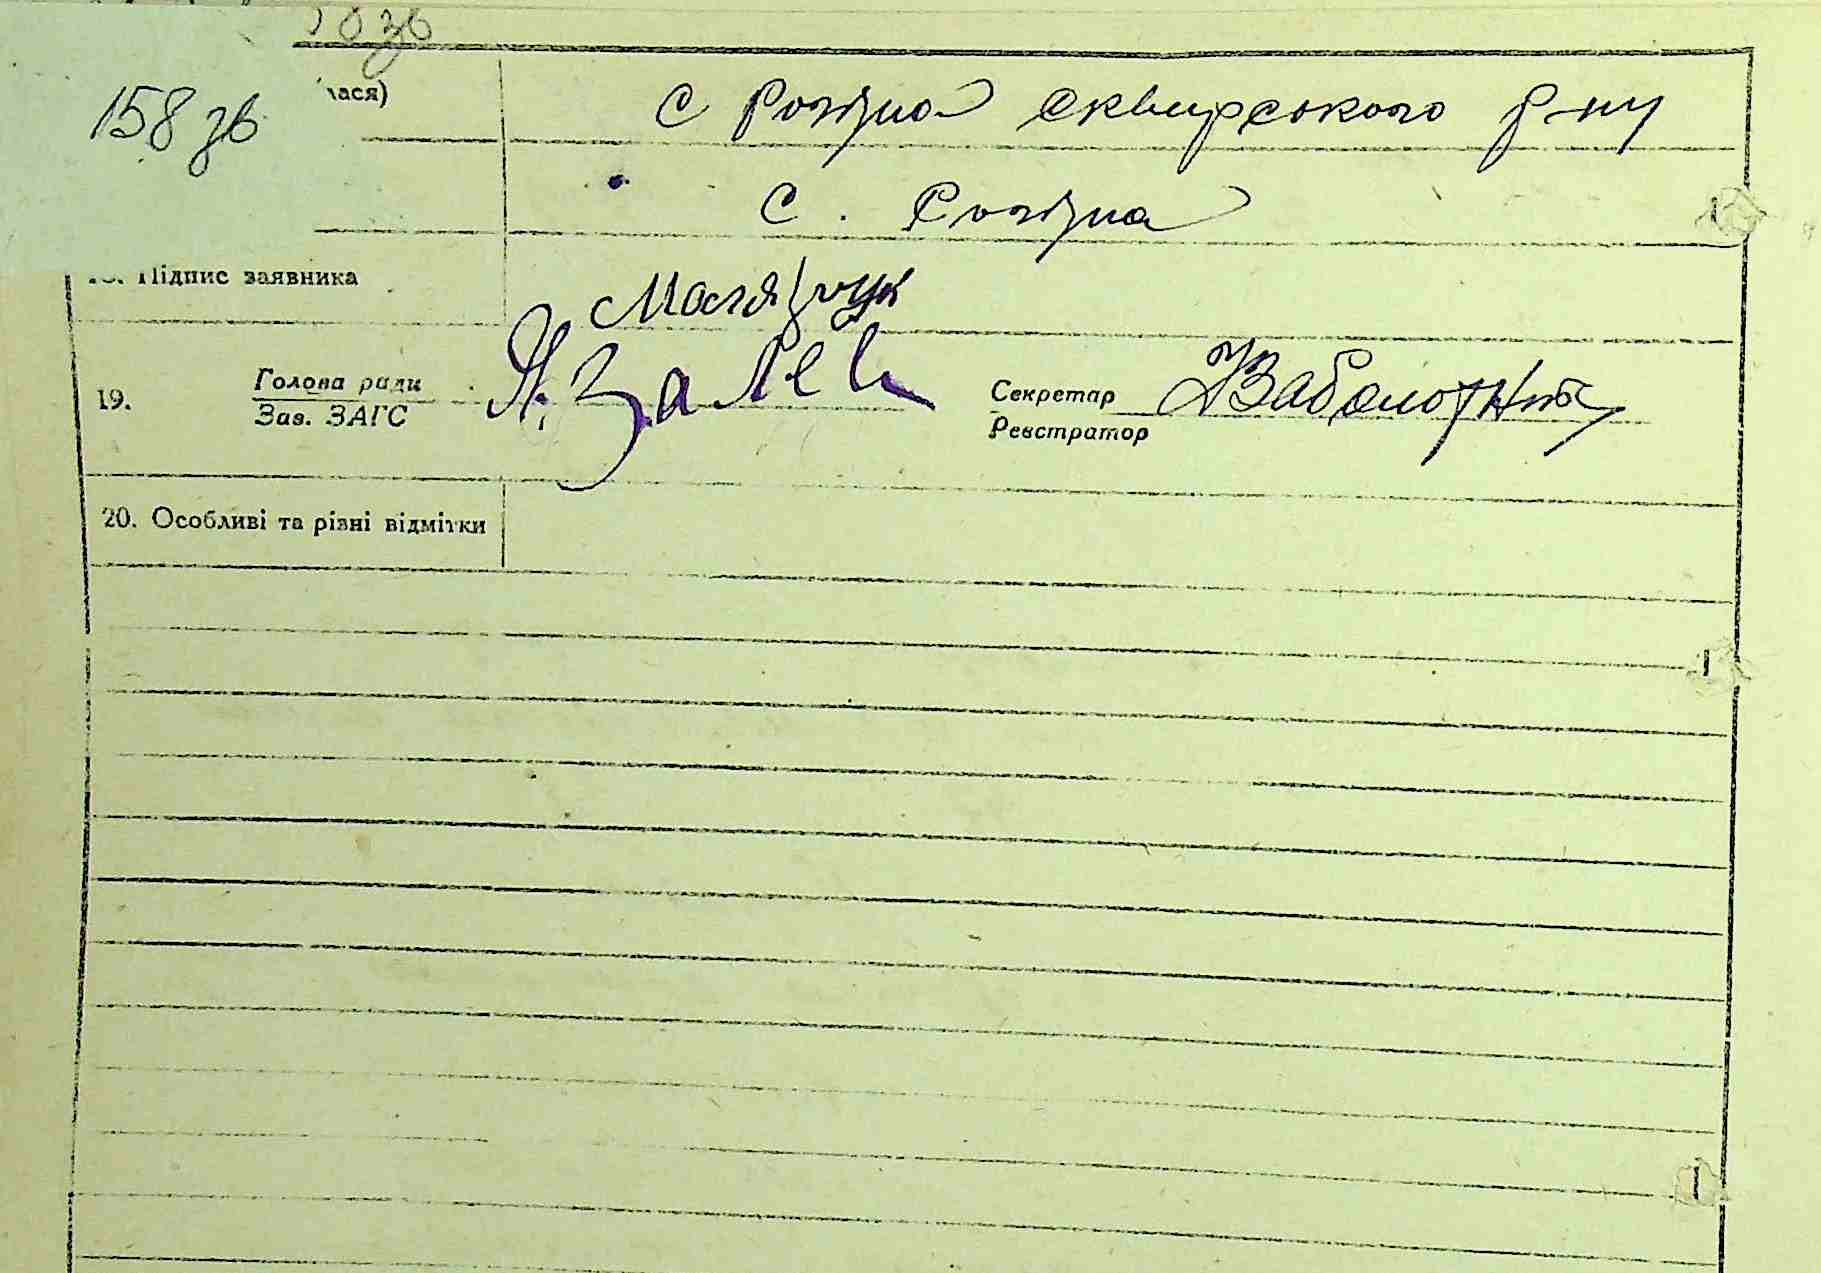 158 зв
лася)
с Рогізна Сквирського р-ну
с. Рогізна
Підпис заявника
Малярчук
19.
Голова ради
Зав. ЗАГС
Секретар
Реєстратор
Заболотний
20. Особливі та різні відмітки